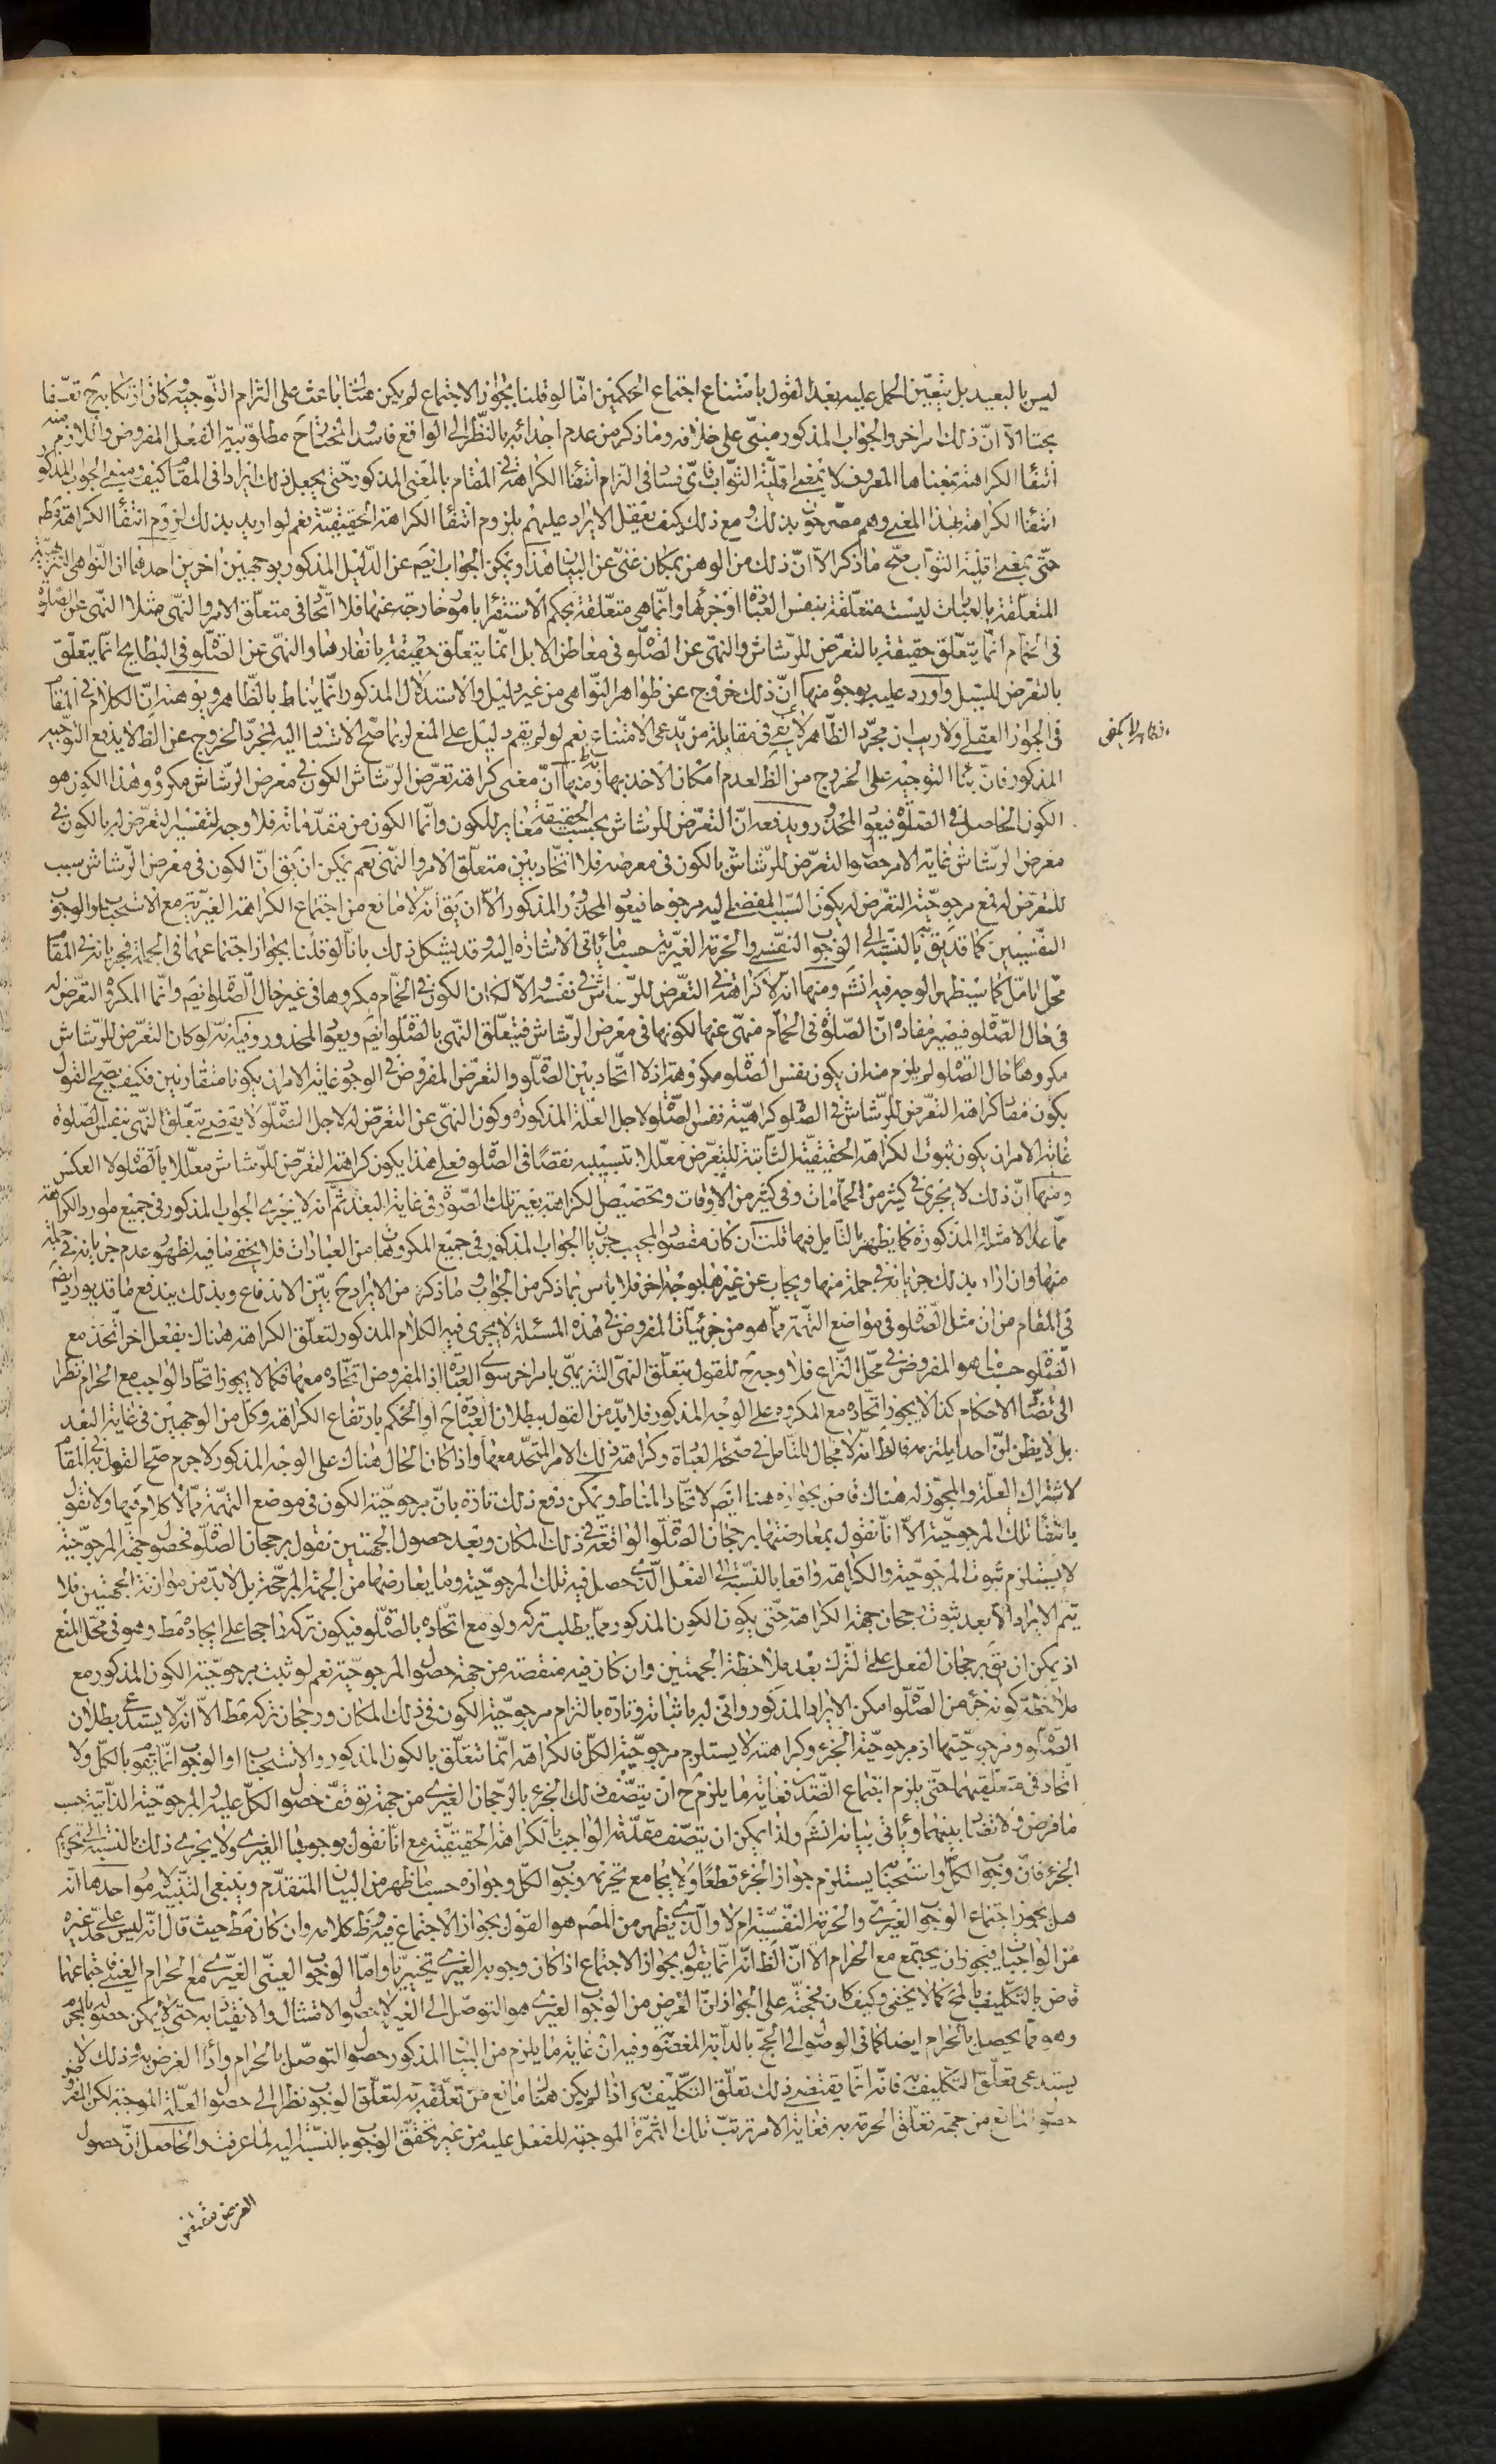 ليس بالبعيد بل يتعيّن الحمل عليه بعد القول بامتناع اجتماع الحكمين امّا لو قلنا بجواز الاجتماع لم يكن هنا باعث على التزام التّوجيه وكان ارتكابه ح تعسّفا
بحتا الّا انّ ذلك امر اخر والجواب المذكور مبنىّ على خلافه وما ذكر من عدم اجدائه بالنّظر الى الواقع فاسد واتّضاح مطلوبيّة الفعل المفروض واللازم منه
انتفاء الكراهة بمعناها المعروف لا بمعنى اقليّة الثّواب فاىّ فساد فى التزام انتفاء الكراهة فى المقام بالمعنى المذكور حتّى يجعل ذلك ايرادا فى المقام كيف ومبنى الجواب المذكور
انتفاء الكراهة بهذا المعنى وهم مصرّحون بذلك ومع ذلك كيف يعقل الايراد عليهم بلزوم انتفاء الكراهة الحقيقيّة نعم لو اريد بذلك لزوم انتفاء الكراهة مط
حتّى بمعنى اقليّة الثواب صحّ ما ذكر الّا انّ ذلك من الوهن بمكان غنىّ عن البيان هذا ويمكن الجواب ايضا عن الدّليل المذكور بوجهين اخرين احدهما ان النّواهى التنزيهيّة
المتعلّقة بالعبادات ليست متعلّقة بنفس العبادة او جزئها وانّما هى متعلّقة بحكم الاستقراء بامور خارجة عنها فلا اتّحاد فى متعلّق الامر والنّهى مثلا النّهى عن الصّلوة
فى الحمّام انّما يتعلّق حقيقة بالتعرّض للرّشاش والنّهى عن الصّلوة فى معاطن الابل انّما يتعلّق حقيقة بانفارها والنّهى عن الصّلوة فى البطايح انّما يتعلّق
بالتعرّض للسّيل واورد عليه بوجوه منها انّ ذلك خروج عن ظواهر النّواهى من غير دليل والاستدلال المذكور انّما يناط بالظّاهر ويوهنه انّ الكلام فى المقام
فى الجواز العقلى ولا ريب ان مجرّد الظّاهر لا يكفى فى مقابلة من يدّعى الامتناع نعم لو لم يقم دليل على المنع لربما صحّ الاستناد اليه لمجرّد الخروج عن الظ لا يدفع التوجيه
المذكور فانّ بناء التوجيه على الخروج من الظ لعدم امكان الاخذ به ومنها انّ معنى كراهة تعرّض الرّشاش الكون فى معرض الرّشاش مكروه وهذا الكون هو
الكون الحاصل فى الصّلوة فيعود المحذور ويدفعه انّ التعرّض للرشاش بحسب الحقيقة مغاير للكون وانّما الكون من مقدّماته فلا وجه لتفسير التعرّض له بالكون فى
معرض الرّشاش غاية الامر حصول التعرّض للرّشاش بالكون فى معرضه فلا اتّحاد بين متعلّق الامر والنّهى نعم يمكن ان يق انّ الكون فى معرض الرّشاش سبب
للتعرّض له فمع مرجوحيّة التعرّض له يكون السّبب المفضى اليه مرجوحا فيعود المحذور المذكور الّا ان يق انّه لا مانع من اجتماع الكراهة الغيريّة مع الاستحباب والوجوب
النّفسيّين كما قد يق بالنّسبة الى الوجوب النّفسى والحرمة الغيريّة حسب ما ياتى الاشارة اليه وقد يشكل ذلك بانّا لو قلنا بجواز اجتماعهما فى الجملة فجريانه فى المقام
محلّ تامّل كما سيظهر الوجه فيه انش ومنها انّه لا كراهة فى التعرّض للرّشاش فى نفسه والّا لكان الكون فى الحمّام مكروها فى غير حال الصّلوة ايضا وانّما المكروه التعرّض له
فى حال الصّلوة فيصير مفاده انّ الصّلوة فى الحمّام منهىّ عنها لكونها فى معرض الرّشاش فيتعلّق النّهى بالصّلوة ايضا ويعود المحذور وفيه انّه لو كان التعرّض للرّشاش
مكروها حال الصّلوة لم يلزم منه ان يكون نفس الصّلوة مكروهة اذ لا اتّحاد بين الصّلوة والتعرّض المفروض فى الوجود غاية الامر ان يكونا متقارنين فكيف يصحّ القول
بكون مفاد كراهة التعرّض للرّشاش فى الصّلوة كراهيّة نفس الصّلوة لاجل العلّة المذكورة وكون النهى عن التعرّض له لاجل الصّلوة لا يقضى بتعلّق النّهى بنفس الصّلوة
غاية الامر ان يكون ثبوت الكراهة الحقيقيّة الثّابتة للتعرّض معلّلا بتسبيبه نقصا فى الصّلوة فعلى هذا يكون كراهة التعرّض للرّشاش معلّلا بالصّلوة لا العكس
ومنها انّ ذلك لا يجرى فى كثير من الحمّامات وفى كثير من الاوقات وتخصيص الكراهة بغير تلك الصّورة فى غاية البعد ثمّ انّه لا يجرى الجواب المذكور فى جميع موارد الكراهة
ممّا عدا الامثلة المذكورة كما يظهر بالتّأمل فيها قلت ان كان مقصود المجيب جريان الجواب المذكور فى جميع المكروهات من العبادات فلا يخفى ما فيه لظهور عدم جريانه فى جملة
منها وان اراد بذلك جريانه فى جملة منها ويجاب عن غيرها بوجه اخر فلا بأس بما ذكر من الجواب وما ذكره من الايراد ح بيّن الاندفاع وبذلك يندفع ما قد يورد ايضا
فى المقام من ان مثل الصّلوة فى مواضع التّهمة ممّا هو من جزئيات المفروض فى هذه المسئلة لا يجرى فيه الكلام المذكور لتعلّق الكراهة هناك بفعل اخر اتّحد مع
الصّلوة حسبما هو المفروض فى محلّ النّزاع فلا وجه ح للقول بتعلّق النّهى التنزيهى بامر اخر سوى العبادة اذ المفروض اتّحاده معها فكما لا يجوز اتّحاد الواجب مع الحرام نظرا
الى تضادّ الاحكام كذا لا يجوز اتّحاده مع المكروه على الوجه المذكور فلا بدّ من القول ببطلان العبادة ح او الحكم بارتفاع الكراهة وكلّ من الوجهين فى غاية البعد
بل لا يظن انّ احدا يلتزمه فالظ انّه لا مجال للتّامل فى صحّة العبادة وكراهة ذلك الامر المتّحد معها واذا كان الحال هناك على الوجه المذكور لا جرم صحّ القول به فى المقام
لاشتراك العلّة والمجوّز له هناك قاض بجوازه هنا ايضا لاتّحاد المناط ويمكن دفع ذلك تارة بانّ مرجوحيّة الكون فى موضع التّهمة ممّا لا كلام فيها ولا نقول
بانتفاء تلك المرجوحيّة الّا انّا نقول بمعارضتها برجحان الصّلوة الواقعة فى ذلك المكان وبعد حصول الجهتين نقول برجحان الصّلوة فحصول جهة المرجوحيّة
لا يستلزم ثبوت المرجوحيّة والكراهة واقعا بالنّسبة الى الفعل الّذى حصل فيه تلك المرجوحيّة وما يعارضها من الجهة المرجّحة بل لا بدّ من موازنة الجهتين فلا
يتم الايراد الّا بعد ثبوت رجحان جهة الكراهة حتّى يكون الكون المذكور ممّا يطلب تركه ولو مع اتّحاده بالصّلوة فيكون تركه راجحا على ايجاده مط وهو فى محلّ المنع
اذ يمكن ان يق برجحان الفعل على التّرك بعد ملاحظة الجهتين وان كان فيه منقصة من جهة حصول المرجوحيّة نعم لو ثبت مرجوحيّة الكون المذكور مع
ملاحظة كونه جزء من الصّلوة امكن الايراد المذكور وانّى له باثباته وتارة بالتزام مرجوحيّة الكون فى ذلك المكان ورجحان تركه مط الّا انّه لا يستدعى بطلان
الصّلوة ومرجوحيّتها اذ مرجوحيّة الجزء وكراهته لا يستلزم مرجوحيّة الكلّ فالكراهة انّما تتعلّق بالكون المذكور والاستحباب او الوجوب انّما يتقوم بالكلّ ولا
اتّحاد فى متعلّقيهما حتّى يلزم اجتماع الضّدّين فغاية ما يلزم ح ان يتّصف ذلك الجزء بالرّجحان الغيرى من جهة توقّف حصول الكلّ عليه والمرجوحيّة الذّاتية حسب
ما فرض ولا تضادّ بينهما ويأتى بيانه انش ولذا يمكن ان يتّصف مقدّمة الواجب بالكراهة الحقيقيّة مع انّا نقول بوجوبها الغيرى ولا يجرى ذلك بالنّسبة الى تحريم
الجزء فانّ وجوب الكلّ واستحبابه يستلزم جواز الجزء قطعا ولا يجامع تحريمه وجوب الكلّ وجوازه حسب ما ظهر من البيان المتقدّم وينبغى التّنبيه لامور احدها انّه
هل يجوز اجتماع الوجوب الغيرى والحرمة النّفسيّة ام لا والّذى يظهر من المصّ هو القول بجواز الاجتماع فيه وظ كلامه وان كان مط حيث قال انّه ليس على حدّ غيره
من الواجبات فيجوز ان يجتمع مع الحرام الّا انّ الظ انّه انّما يقول بجواز الاجتماع اذا كان وجوبه الغيرى تخييريّا وامّا الوجوب العينى الغيرى مع الحرام العينى فاجتماعهما
قاض بالتّكليف بالمحال كما لا يخفى وكيف كان فحجّته على الجواز انّ الغرض من الوجوب الغيرى هو التوصّل الى الغير لا حصول الامتثال والانقياد به حتّى لا يمكن حصوله بالمحرّم
وهو ممّا يحصل بالحرام ايضا كما فى الوصول الى الحجّ بالدّابة المغصوبة وفيه ان غاية ما يلزم من البيان المذكور حصول التوصّل بالحرام واداء الغرض به وذلك لا
يستدعى تعلّق التكليف به فانّه انّما يقتضى ذلك تعلّق التّكليف به اذا لم يكن هناك مانع من تعلّقه به لتعلّق الوجوب نظرا الى حصول العلّة الموجبة لكن المفروض
حصول المانع من جهة تعلّق الحرمة به فغاية الامر ترتّب تلك الثّمرة الموجبة للفعل عليه من غير تحقّق الوجوب بالنّسبة اليه لما عرفت والحاصل انّ حصول